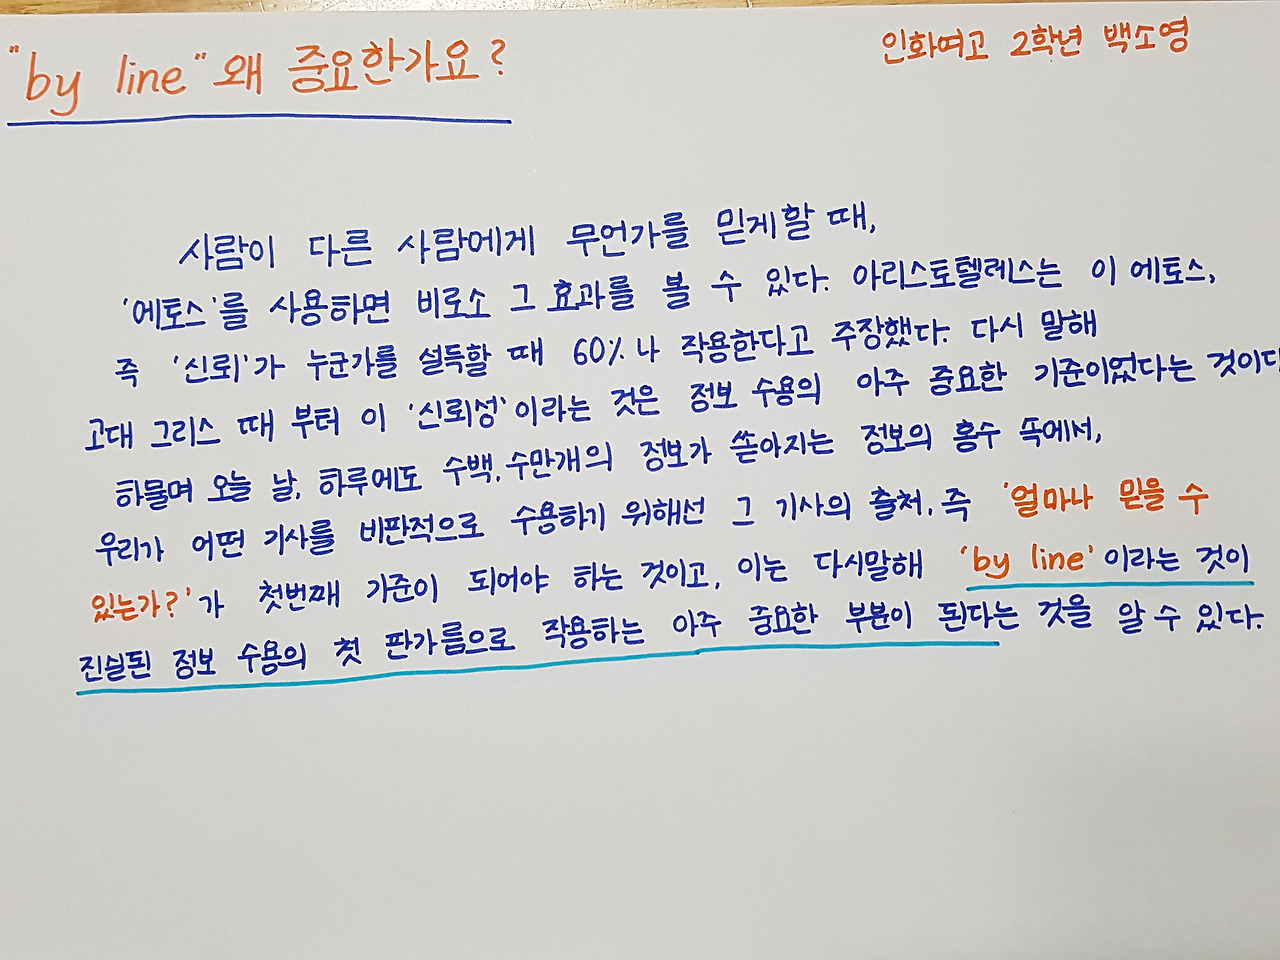 "by line" 왜 중요한가요?
인화여고 2학년 백소영
사람이 다른 사람에게 무언가를 믿게할 때,
'에토스'를 사용하면 비로소 그 효과를 볼 수 있다. 아리스토텔레스는 이 에토스,
즉 '신뢰'가 누군가를 설득할 때 60%나 작용한다고 주장했다. 다시 말해
고대 그리스 때 부터 이 '신뢰성'이라는 것은 정보 수용의 아주 중요한 기준이었다는 것이다
하물며 오늘 날, 하루에도 수백, 수만개의 정보가 쏟아지는 정보의 홍수 속에서,
우리가 어떤 기사를 비판적으로 수용하기 위해선 그 기사의 출처, 즉 '얼마나 믿을 수
있는가?'가 첫번째 기준이 되어야 하는 것이고, 이는 다시말해 'by line'이라는 것이
진실된 정보 수용의 첫 판가름으로 작용하는 아주 중요한 부분이 된다는 것을 알 수 있다.